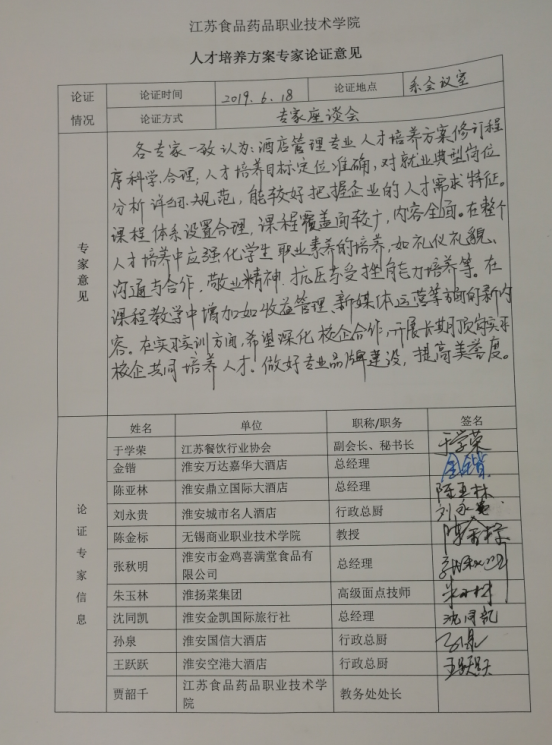 江苏食品药品职业技术学院
人才培养方案专家论证意见
论证情况 论证时间 2019.6.18 论证地点 系会议室
论证方式 专家座谈会
专家意见
各专家一致认为:酒店管理专业人才培养方案修订程
序科学、合理,人才培养目标定位准确,对就业典型岗位
分析详细、规范,能较好把握企业的人才需求特征。
课程体系设置合理,课程覆盖面较广,内容全面。在整个
人才培养中应强化学生职业素养的培养,如礼仪礼貌、
沟通与合作、敬业精神、抗压与受挫能力培养等。在
课程教学中增加如收益管理、新媒体运营等方面的新内
容。在实习实训方面,希望深化校企合作,开展长期顶岗实习
校企共同培养人才。做好专业品牌建设,提高美誉度。
论证专家信息
姓名 单位 职称/职务 签名
于学荣 江苏餐饮行业协会 副会长、秘书长 于学荣
金锴 淮安万达嘉华大酒店 总经理 金锴
陈亚林 淮安鼎立国际大酒店 总经理 陈亚林
刘永贵 淮安城市名人酒店 行政总厨 刘永贵
陈金标 无锡商业职业技术学院 教授 陈金标
张秋明 淮安市金鸡喜满堂食品有
限公司 总经理
朱玉林 淮扬菜集团 高级面点技师
沈同凯 淮安金凯国际旅行社 总经理 沈同凯
孙泉 淮安国信大酒店 行政总厨 孙泉
王跃跃 淮安空港大酒店 行政总厨 王跃跃
贾韶千 江苏食品药品职业技术学
院 教务处处长